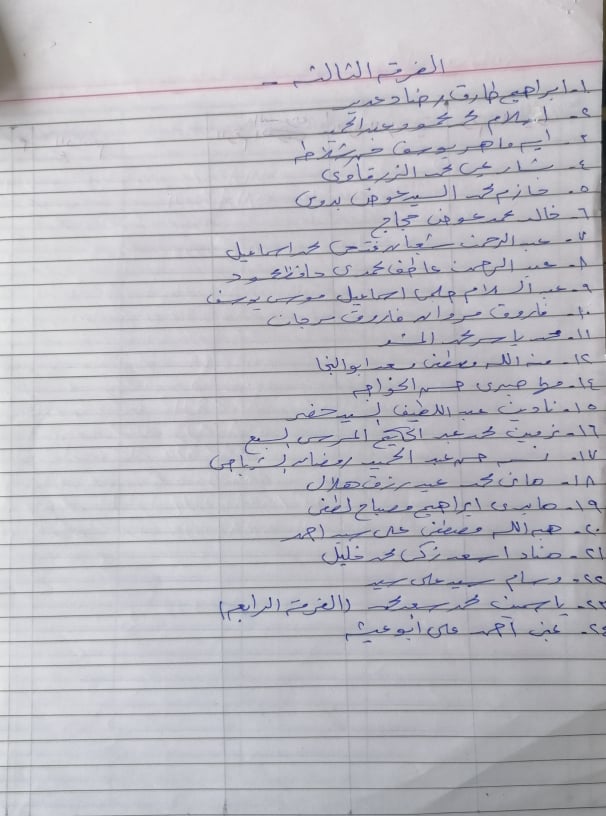 الفرقه الثالثه -
١- ابراهيم طارق رضا
٢- اسلام محمود عبدالحميد
٣- ايه ماهر يوسف
٤- بشار محمد الزرقاوى
٥- حازم محمد السيد عوض بدوى
٦- خالد محمد عوض حجاج
٧- عبدالرحمن شعبان فتحى محمد اسماعيل
٨- عبدالرحمن عاطف حمدى حافظ محمود
٩- عبدالسلام حلمى اسماعيل موسى يوسف
١٠- فاروق مروان فاروق سرحان
١١- محمد ياسر محمد
١٢- منه الله مصطفى سعد ابوالنجا
١٤- مها صبرى حسن الخواجه
١٥- نادين عبد اللطيف السيد خضر
١٦- نرمين محمد عبد الحكيم المرسى السبع
١٧- حسن عبد الحميد رمضان
١٨- هانى محمد عيد رزق هلال
١٩- ابراهيم مصباح لطفى
٢٠- هبه الله مصطفى على سيد احمد
٢١- هناد اسعد زكى محمد خليل
٢٢- وسام سيد على سيد
٢٣- ياسمين محمد سعد محمد (الفرقه الرابعه)
٢٤- احمد على ابوعيشه